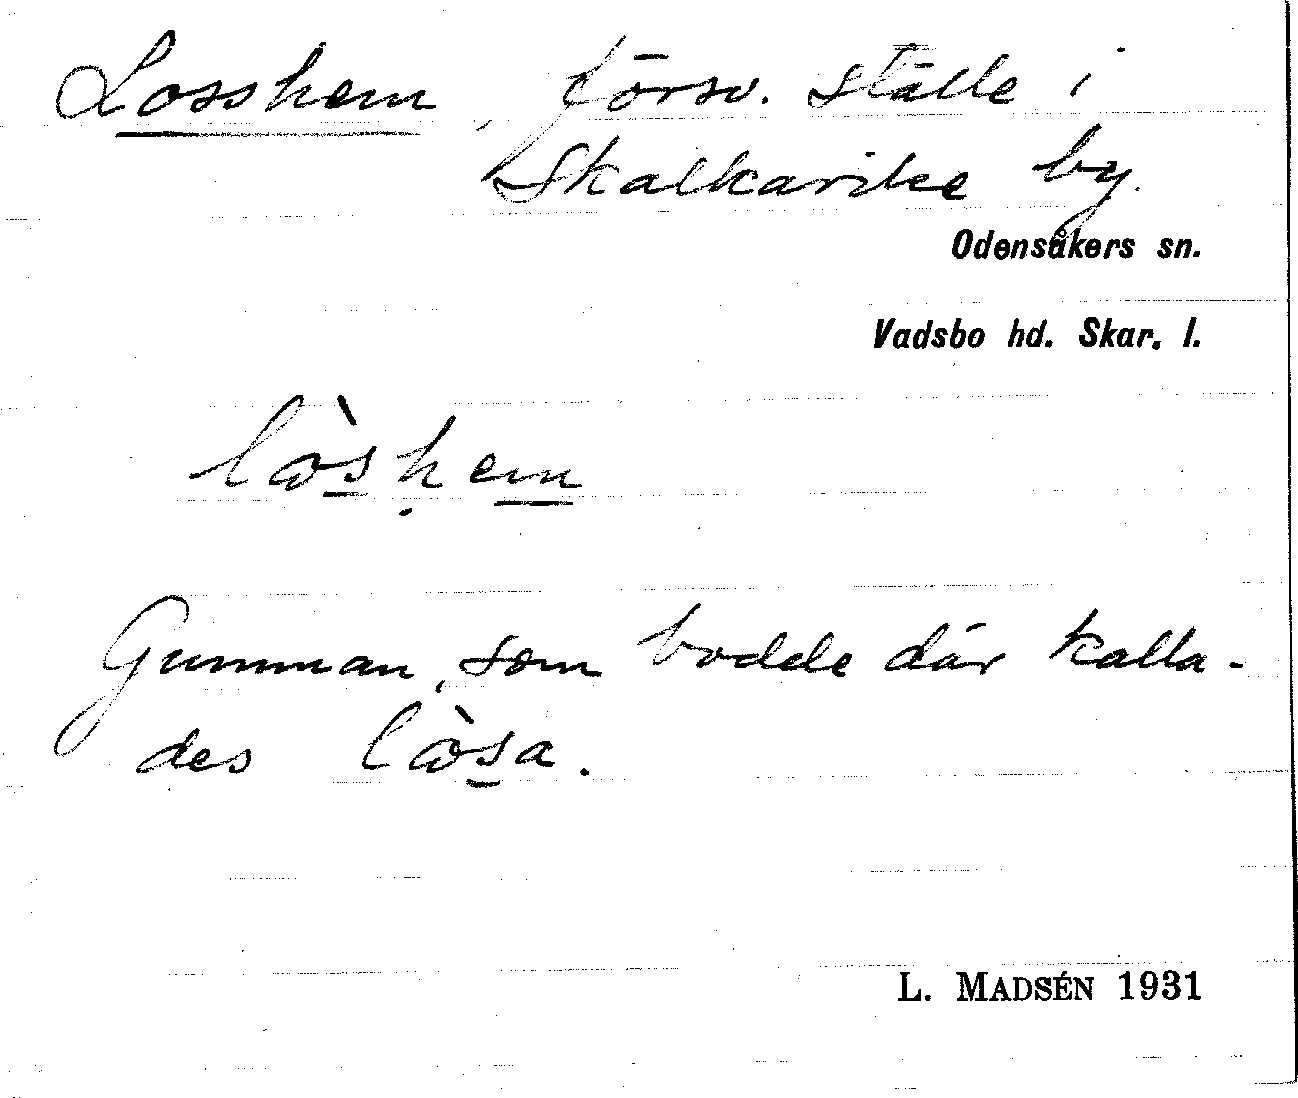 Losshem, försv. ställe i
Skalkarike by.
Odensåkers sn.
Vadsbo hd. Skar. l.
lòsḥem
Gumman, som bodde där kalla-
des lòsa.
L. MADSÉN 1931